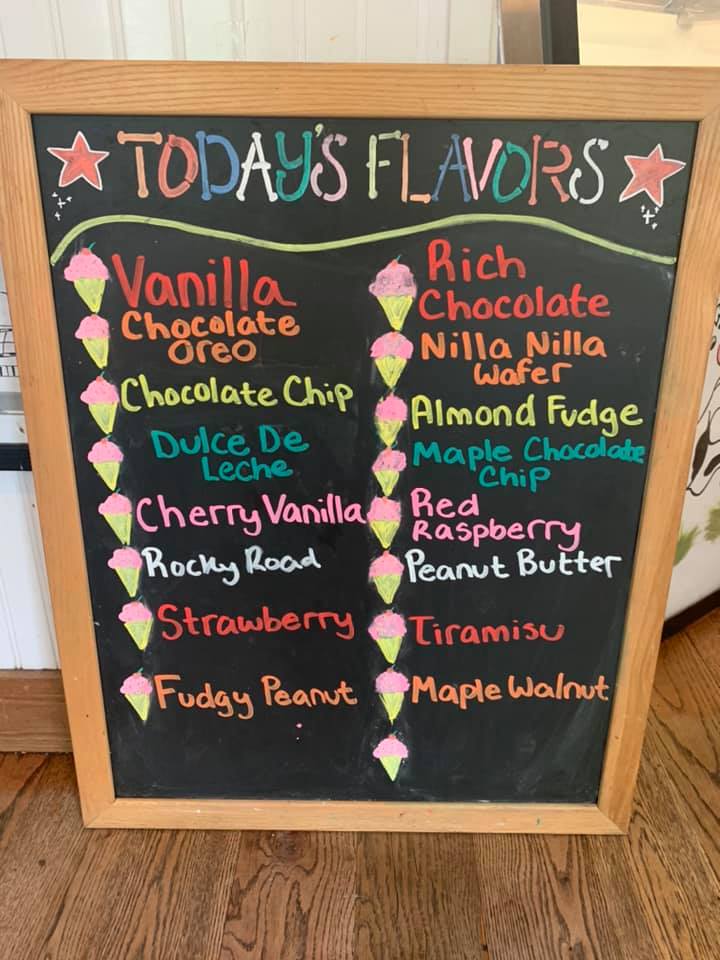 TODAY'S FLAVORS
Vanilla
Chocolate
Oreo
Chocolate Chip
Dulce De
Leche
Cherry Vanilla
Rocky Road
Strawberry
Fudgy Peanut
Rich
Chocolate
Nilla Nilla
Wafer
Almond Fudge
Maple Chocolate
Chip
Red
Raspberry
Peanut Butter
Tiramisu
Maple Walnut